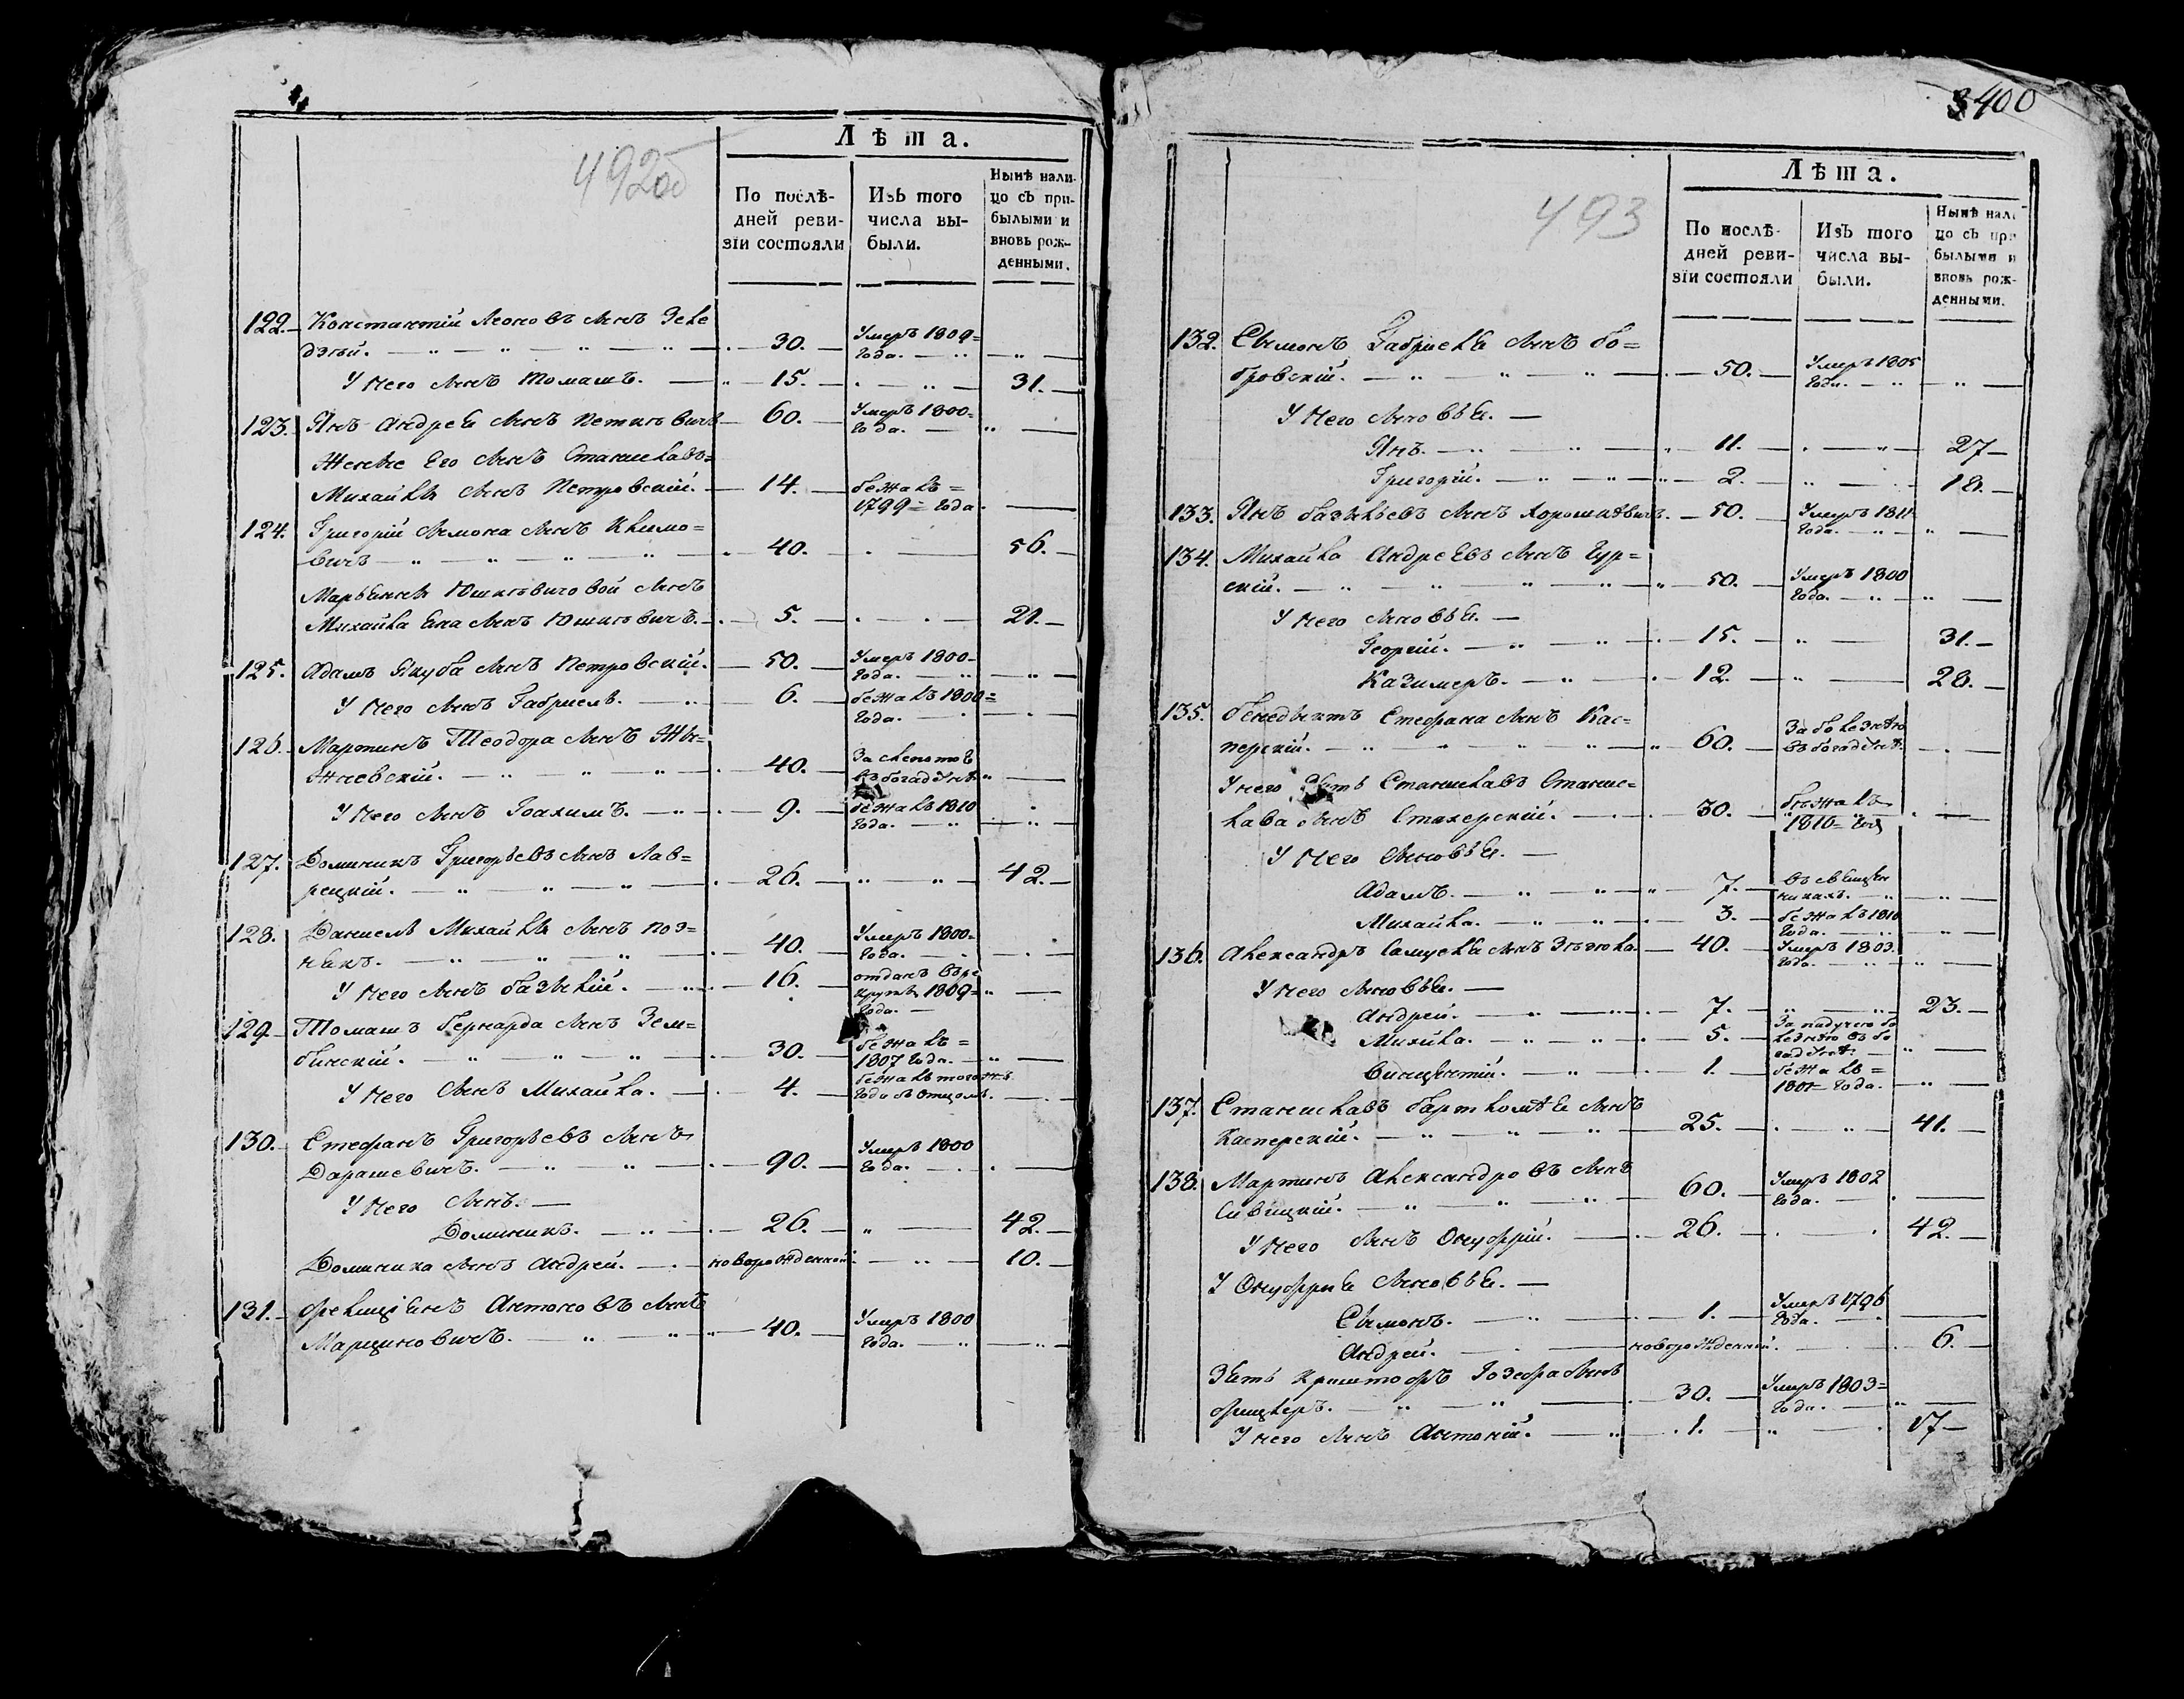 492об
Лѣта.
По послѣ-
дней реви-
зіи состояли
Изъ того
числа вы-
были.
Нынѣ нали-
цо съ при-
былыми и
вновь рож-
денными.
122. Константій Леоновъ сынъ
30. Умеръ 1809 года.
У него сынъ Томашъ. 15. 31.
123. Янъ Андрея сынъ 60. Умеръ 1800 года.
Его сынъ Станиславъ
Михайлы сынъ Петровскій. 14. бежалъ
1799 года.
124. Григорій сынъ Климо=
вичъ 40. 56.
сынъ
Михайла Яна сынъ 5. 21.
125. Адамъ Якуба сынъ Петровскій. 50. Умеръ 1800 года.
У него сынъ Габріель. 6. бежалъ 1800 года.
126. Мартинъ Теодора сынъ
40.
У него сынъ Іоахимъ. 9. бежалъ 1810 года.
127. Доминикъ Григорьевъ сынъ Лав=
рецкій. 26. 42.
128. Даніелъ Михайлы сынъ Поз=
някъ. 40. Умеръ 1800 года.
У него сынъ Базылій. 16. отданъ въ ре
круты 1809 года.
129. Томашъ Бернарда сынъ Зем=
бинскій. 30. бежалъ
1807 года.
У него сынъ Михайла. 4. бежалъ того жъ
года съ отцомъ.
130. Стефанъ Григорьевъ сынъ
Дарашевичъ. 90. Умеръ 1800 года.
У него сынъ.
Доминикъ. 26. 42.
Доминика сынъ Андрей. новорожденной 10.
131. Фелиціянъ Антоновъ сынъ
Марциновичъ. 40. Умеръ 1800 года.
400
493
Лѣта.
По послѣ-
дней реви-
зіи состояли
Изъ того
числа вы-
были.
Нынѣ нали
цо съ при
былыми и
вновь рож-
денными.
132. Сымонъ Габріеля сынъ бо=
бровскій. 50. Умеръ 1805 года.
У него сыновья.
Янъ. 11. 27
Григорій. 2. 18.
133. Янъ Базыльевъ сынъ 50. Умеръ 1811 года.
134. Михайла Андреевъ сынъ Гур=
скій. 50. Умеръ 1800 года.
У него сыновья.
Георгій. 15. 31.
Казимеръ. 12. 28.
135. Бенедыктъ Стефана сынъ Кас=
перскій. 60. За болезнею
въ богадѣлнѣ.
У него Зять Станиславъ Станис=
лава сынъ 30. бѣжалъ
1810 года
У него сыновья.
Адамъ. 7.
Михайла. 3. бежалъ 1810 года.
136. Александръ Самуеля сынъ 40. Умеръ 1803 года.
У него сыновья.
Андрей. 7. 23.
Михайла. 5. За падучею бо
лезнею въ бо
гадѣлнѣ
Винцентій. 1. бежалъ
года.
137. Станиславъ Бартломѣя сынъ
Касперскій. 25. 41.
138. Мартинъ Александровъ сынъ
Сивицкій. 60. Умеръ 1802 года.
У него сынъ Онуфрій. 26. 42.
У Онуфрія сыновья.
Сымонъ. 1. Умеръ 1796 года.
Андрей. новорожденной. 6.
Зять Криштофъ Іозефа сынъ
30. Умеръ 1803 года.
У него сынъ Антоній. 1. 17